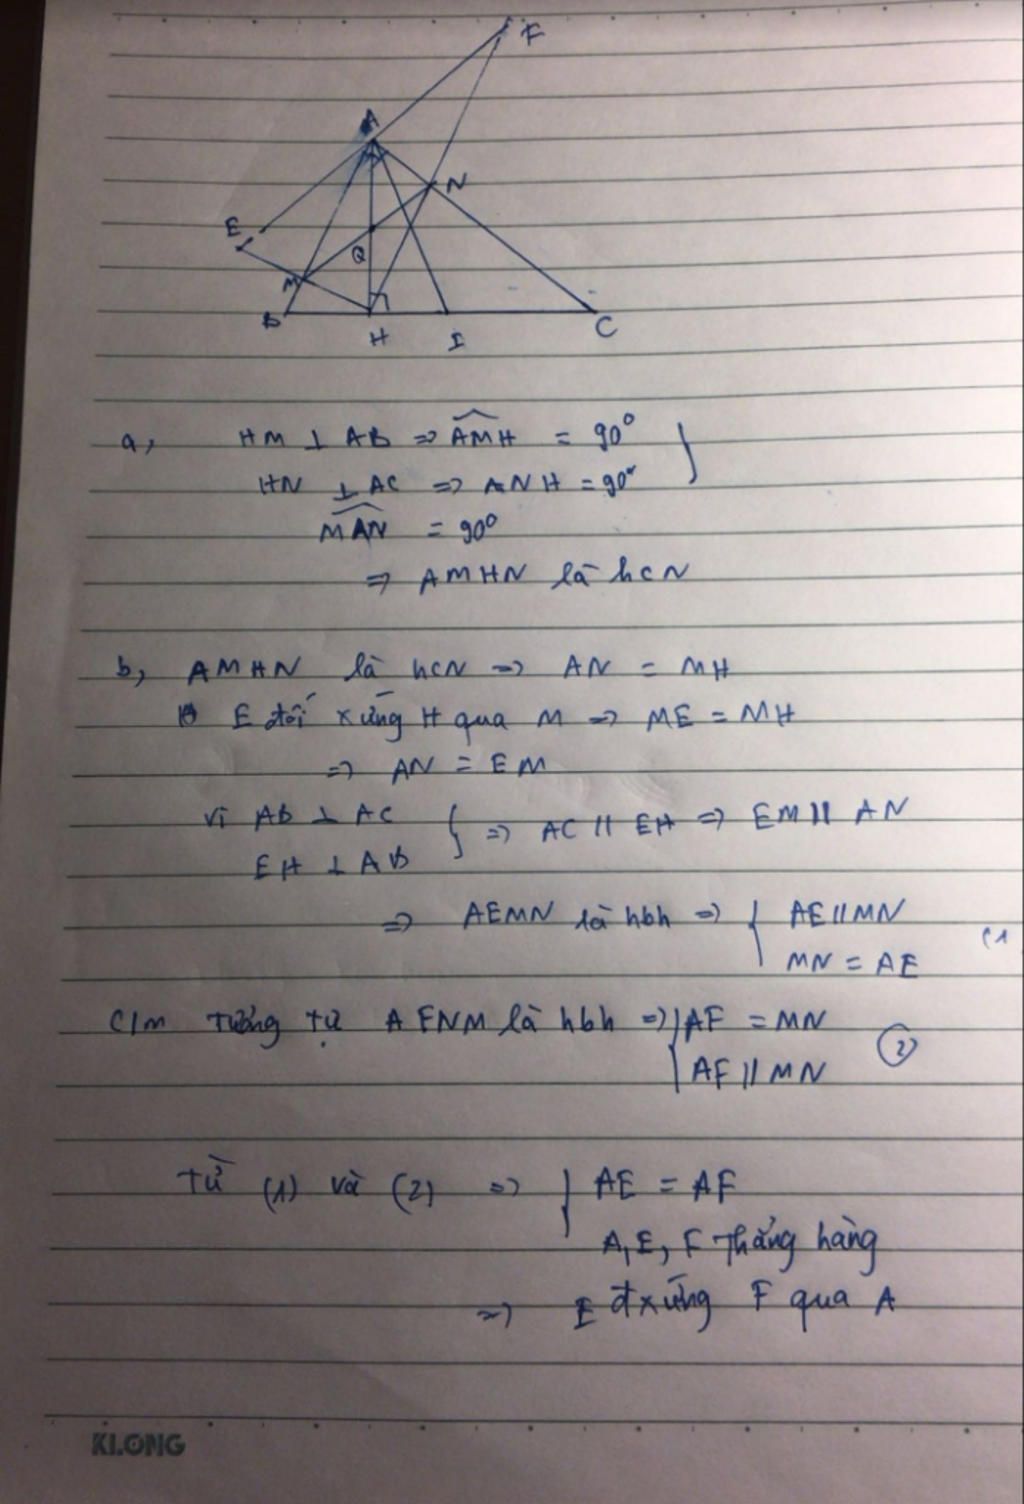 F
A
N
E
Q
M
B
H
I
C
a, HM ⊥ AB => AMH = 90°
HN ⊥ AC => ANH = 90°
MAN = 90°
=> AMHN là hcN
b, AMHN là hcN => AN = MH
E đối xứng H qua M => ME = MH
=> AN = EM
Vì AB ⊥ AC
EH ⊥ AB } => AC // EH => EM // AN
=> AEMN là hbh => { AE // MN
MN = AE (1
C/m tương tự AFNM là hbh => { AF = MN
AF // MN (2)
Từ (1) và (2) => { AE = AF
A, E, F thẳng hàng
=> E đxứng F qua A
KLONG